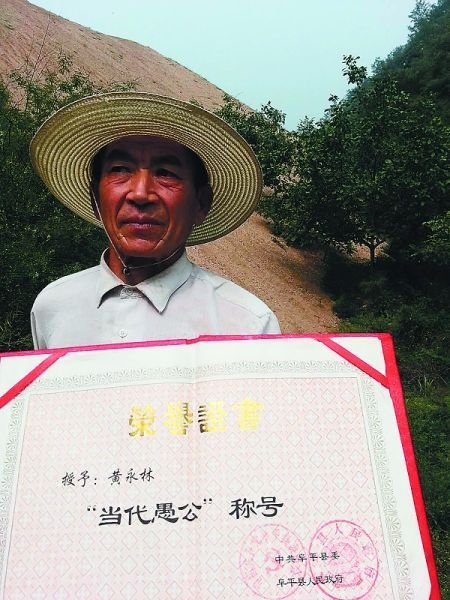 荣誉證書
授予：黄永林
“当代愚公”称号
中共阜平县委
阜平县人民政府